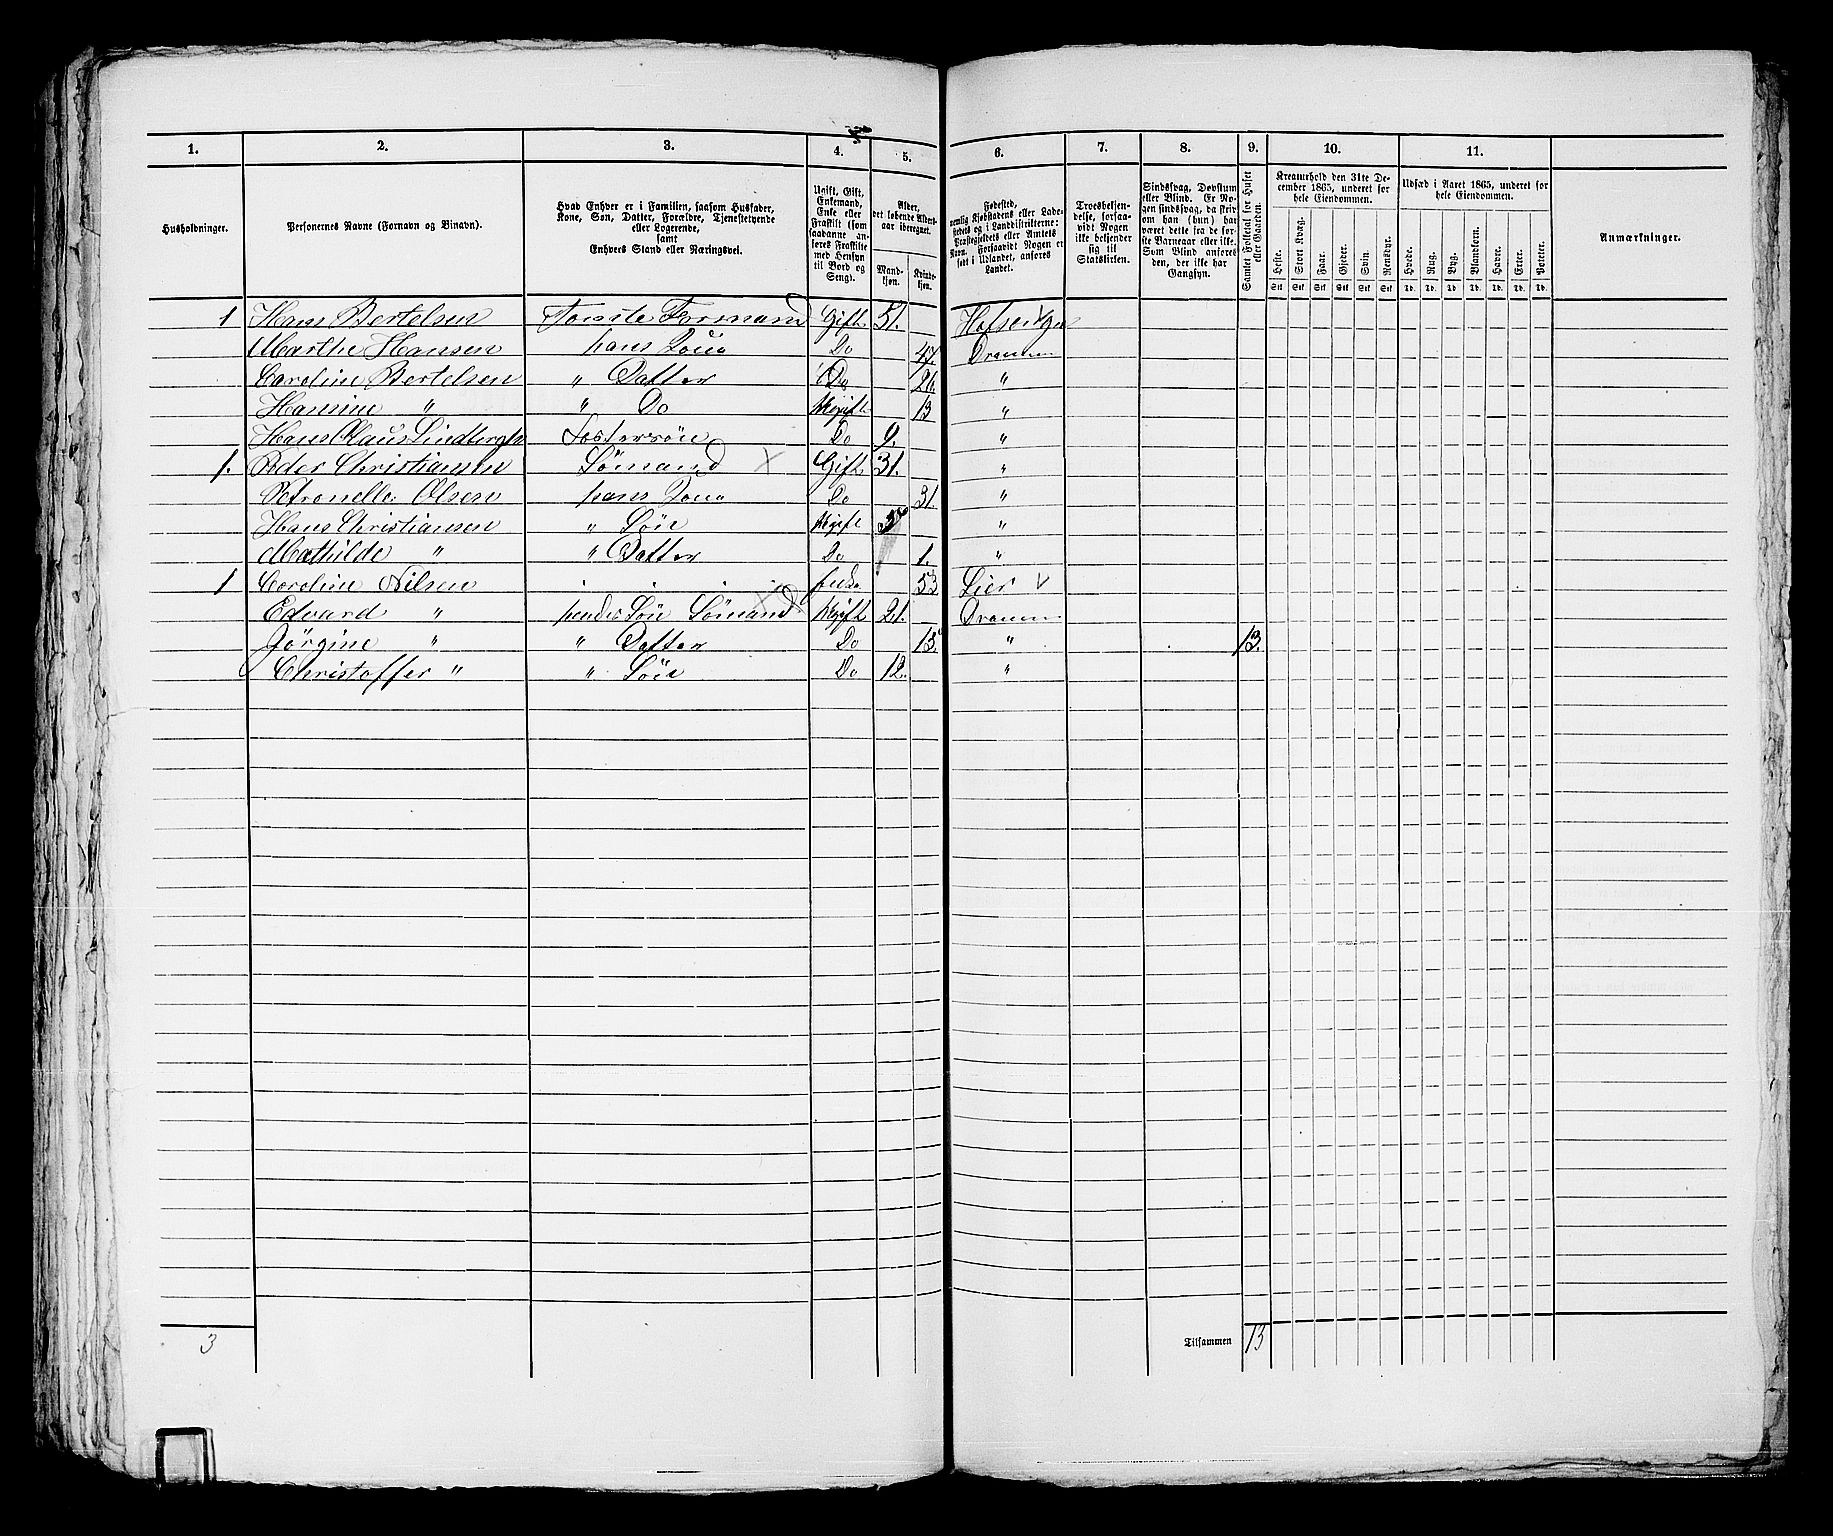 1. 2. 3. 4. 5. 6. 7. 8. 9. 10. 11.
Husholdninger.
Personernes Navne (Fornavn og Binavn).
Hvad Enhver er i Familien, saasom Husfader, Kone, Søn, Datter, Forældre, Tjenestetyende eller Logerende, samt Enhvers Stand eller Næringsvei.
Ugift, Gift, Enkemand, Enke eller Fraskilt (som saadanne anføres Fraskilte med Hensyn til Bord og Seng).
Alder, det løbende Aldersaar iberegnet.
Mandkjøn. Kvindekjøn.
Fødested, nemlig Kjøbstadens eller Ladestedets og i Landdistrikterne: Præstegjeldets eller Amtets Navn. Forsaavidt Nogen er født i Udlandet, anføres Landet.
Troesbekjendelse, forsaavidt Nogen ikke bekjender sig til Statskirken.
Sindssvag, Døvstum eller Blind. Er Nogen sindssvag, da skriv om han (hun) har været dette fra de første Barneaar eller ikke. Som Blind anføres den, der ikke har Gangsyn.
Samlet Folketal for Huset eller Gaarden.
Kreaturhold den 31te December 1865, underet for hele Eiendommen.
Heste. Stort Kvæg. Faar. Gjeder. Svin. Rensdyr.
Stk Stk Stk Stk Stk Stk
Udsæd i Aaret 1865, underet for hele Eiendommen.
Hvede. Rug. Byg. Blandkorn. Havre. Erter. Poteter.
Td. Td. Td. Td. Td. Td. Td.
Anmærkninger.
1 Hans Bertelsen Tomte Formand Gift 51.
Marthe Hansen hans Kone Do 47. Dramm
Caroline Bertelsen " Datter Do 26. "
Hansine " " Do Ugift 13 "
Hans Claus Lindbergh Søstersøn Do 9. "
1. Peder Christiansen Sømand Gift 31. "
Petronelle Olsen hans Kone Do 31. "
Hans Christiansen " Søn Ugift "
Mathilde " " Datter Do 1. "
1 Caroline Nilsen Enke 53 Lier
Edvard " hendes Søn Sømand Ugift 21. Dramm
Jørgine " " Datter Do 13. " 13.
Christoffer " " Søn Do 12. "
3 Tilsammen 13